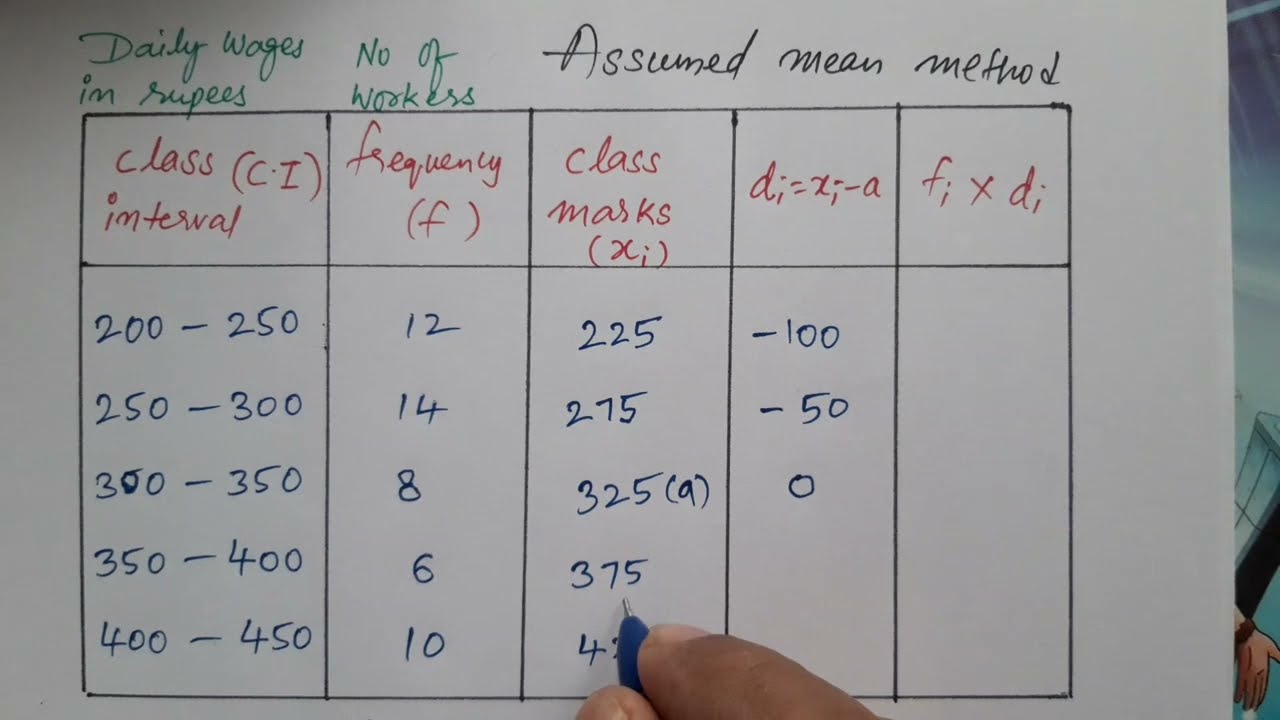 Daily wages No of Assumed mean method
in rupees workers
class (C.I) frequency class dᵢ=xᵢ-a fᵢ × dᵢ
interval (f) marks
(xᵢ)
200 - 250 12 225 -100
250 - 300 14 275 - 50
300 - 350 8 325(a) 0
350 - 400 6 375
400 - 450 10